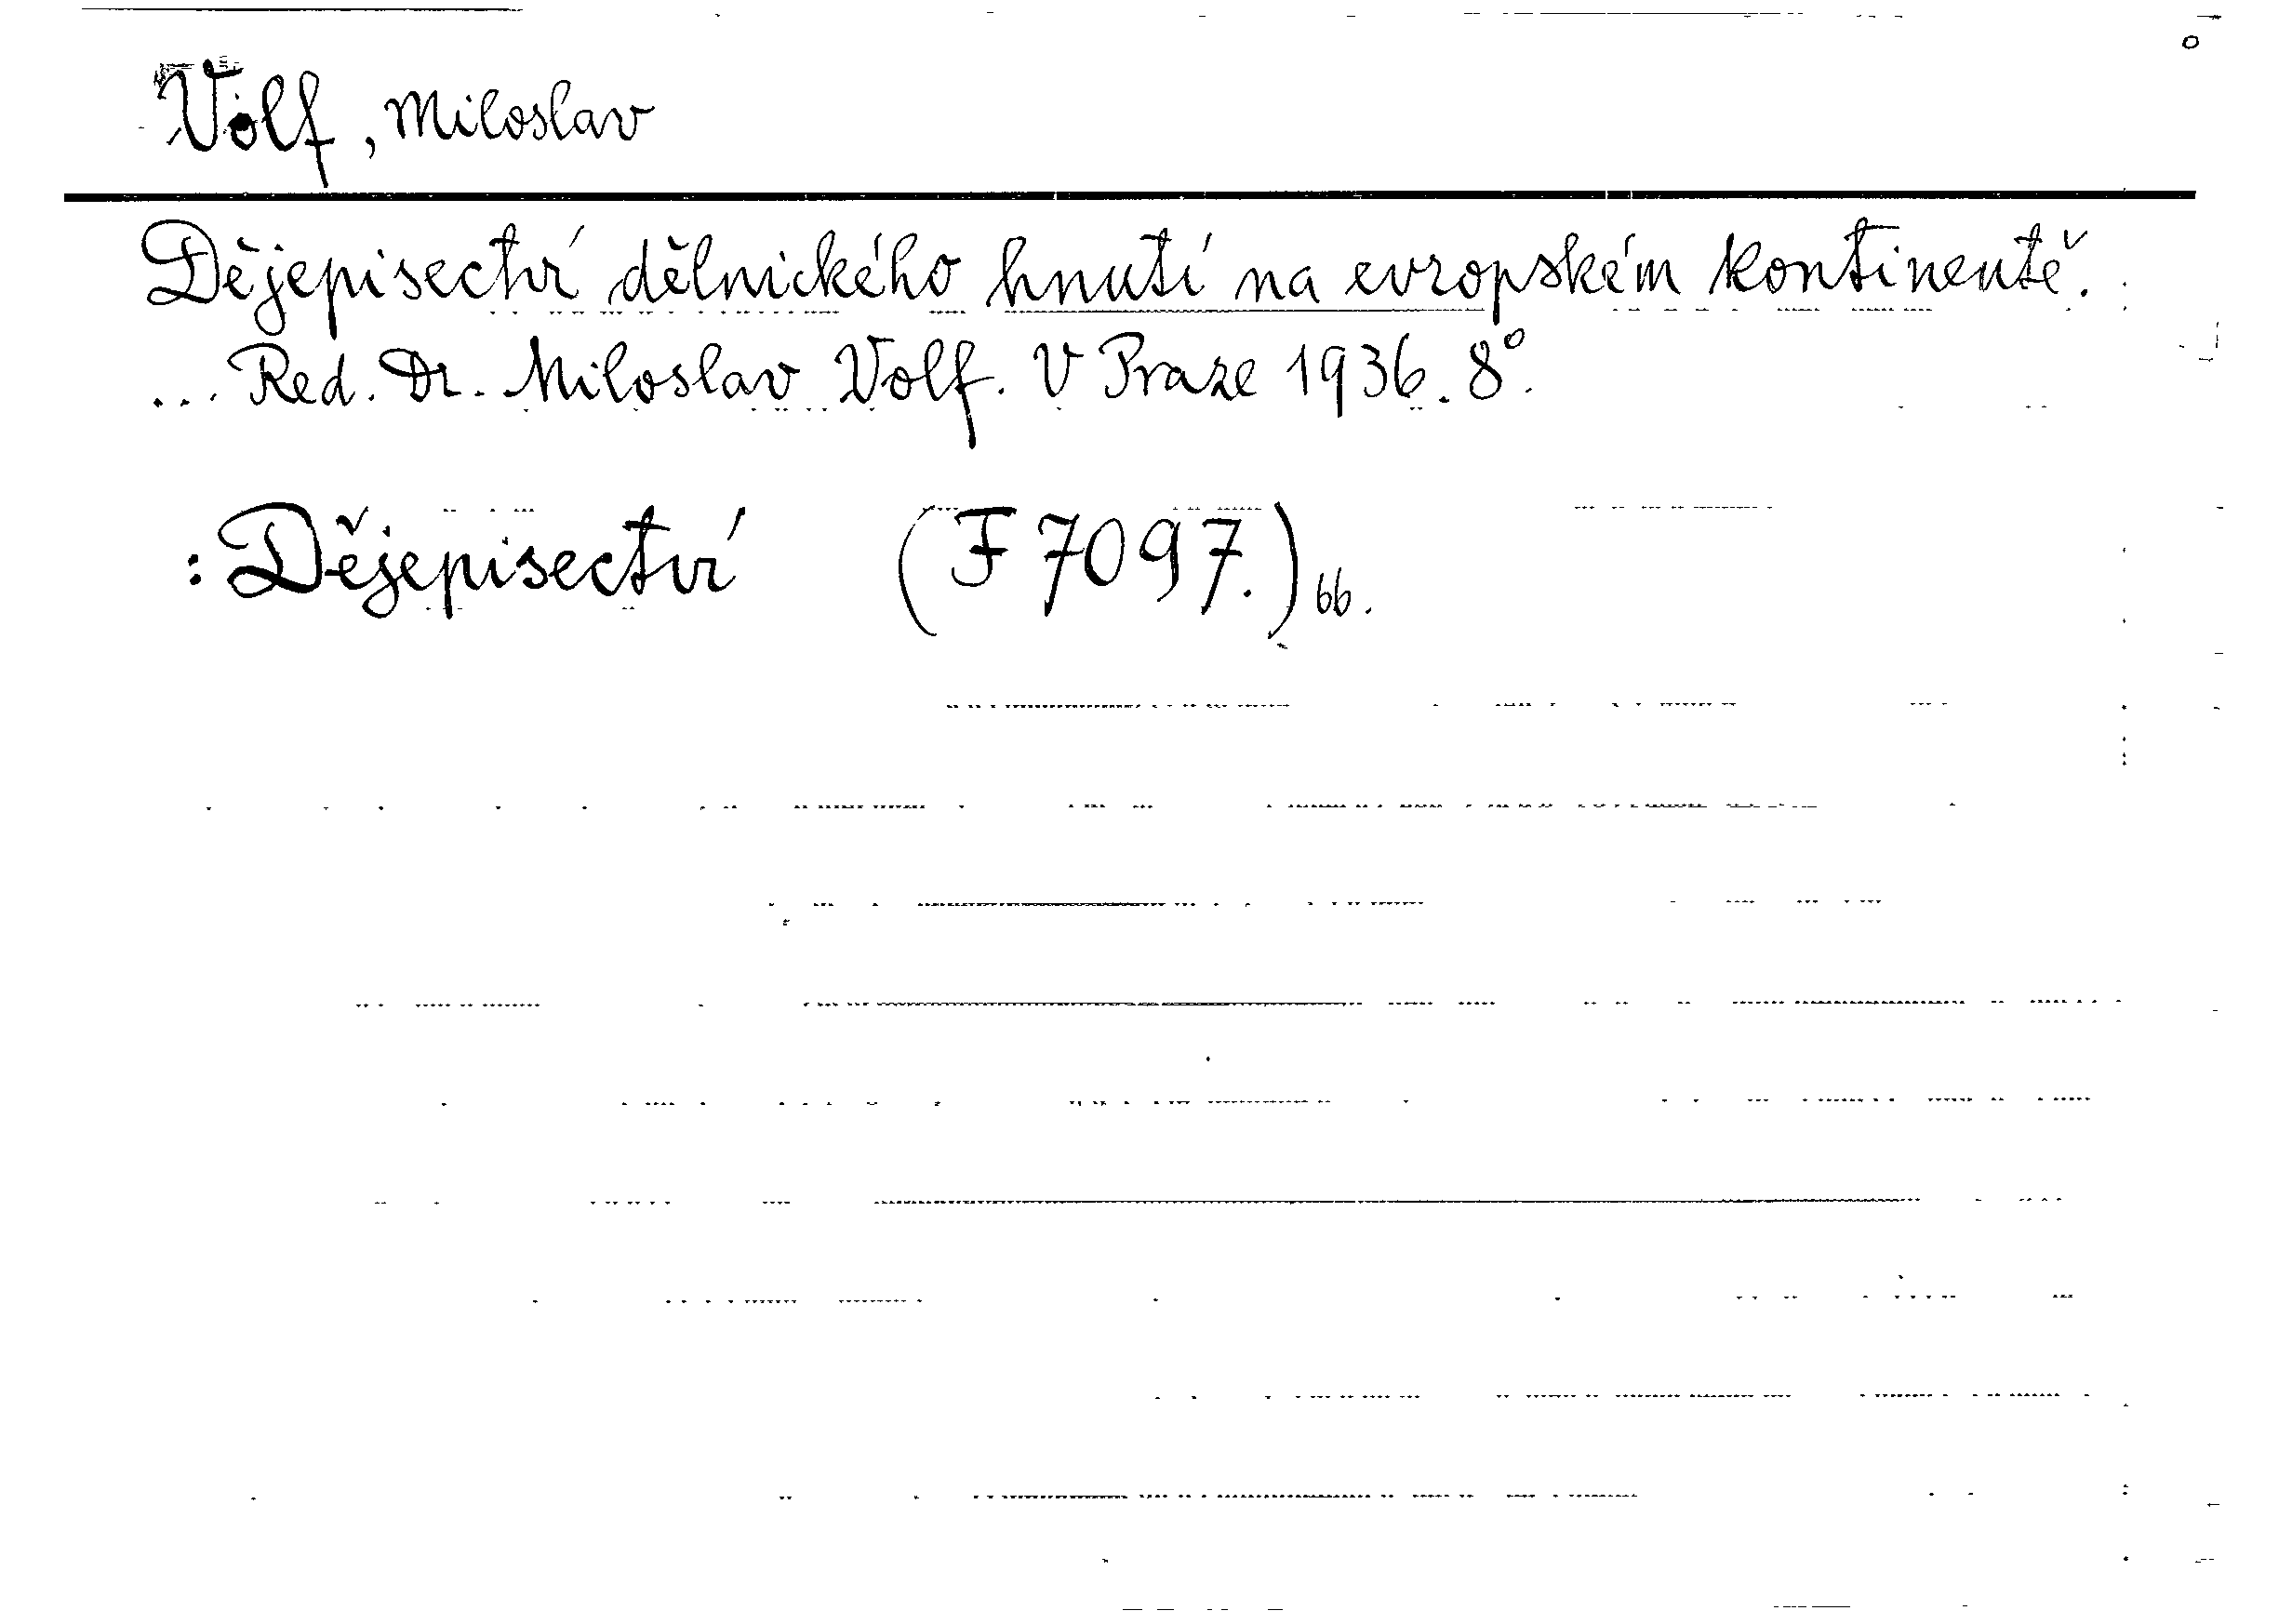 Volf, Miloslav
Dějepisectví dělnického hnutí na evropském kontinentě.
... Red. Dr. Miloslav Volf. V Praze 1936. 8°.
: Dějepisectví (F 7097.) 66.